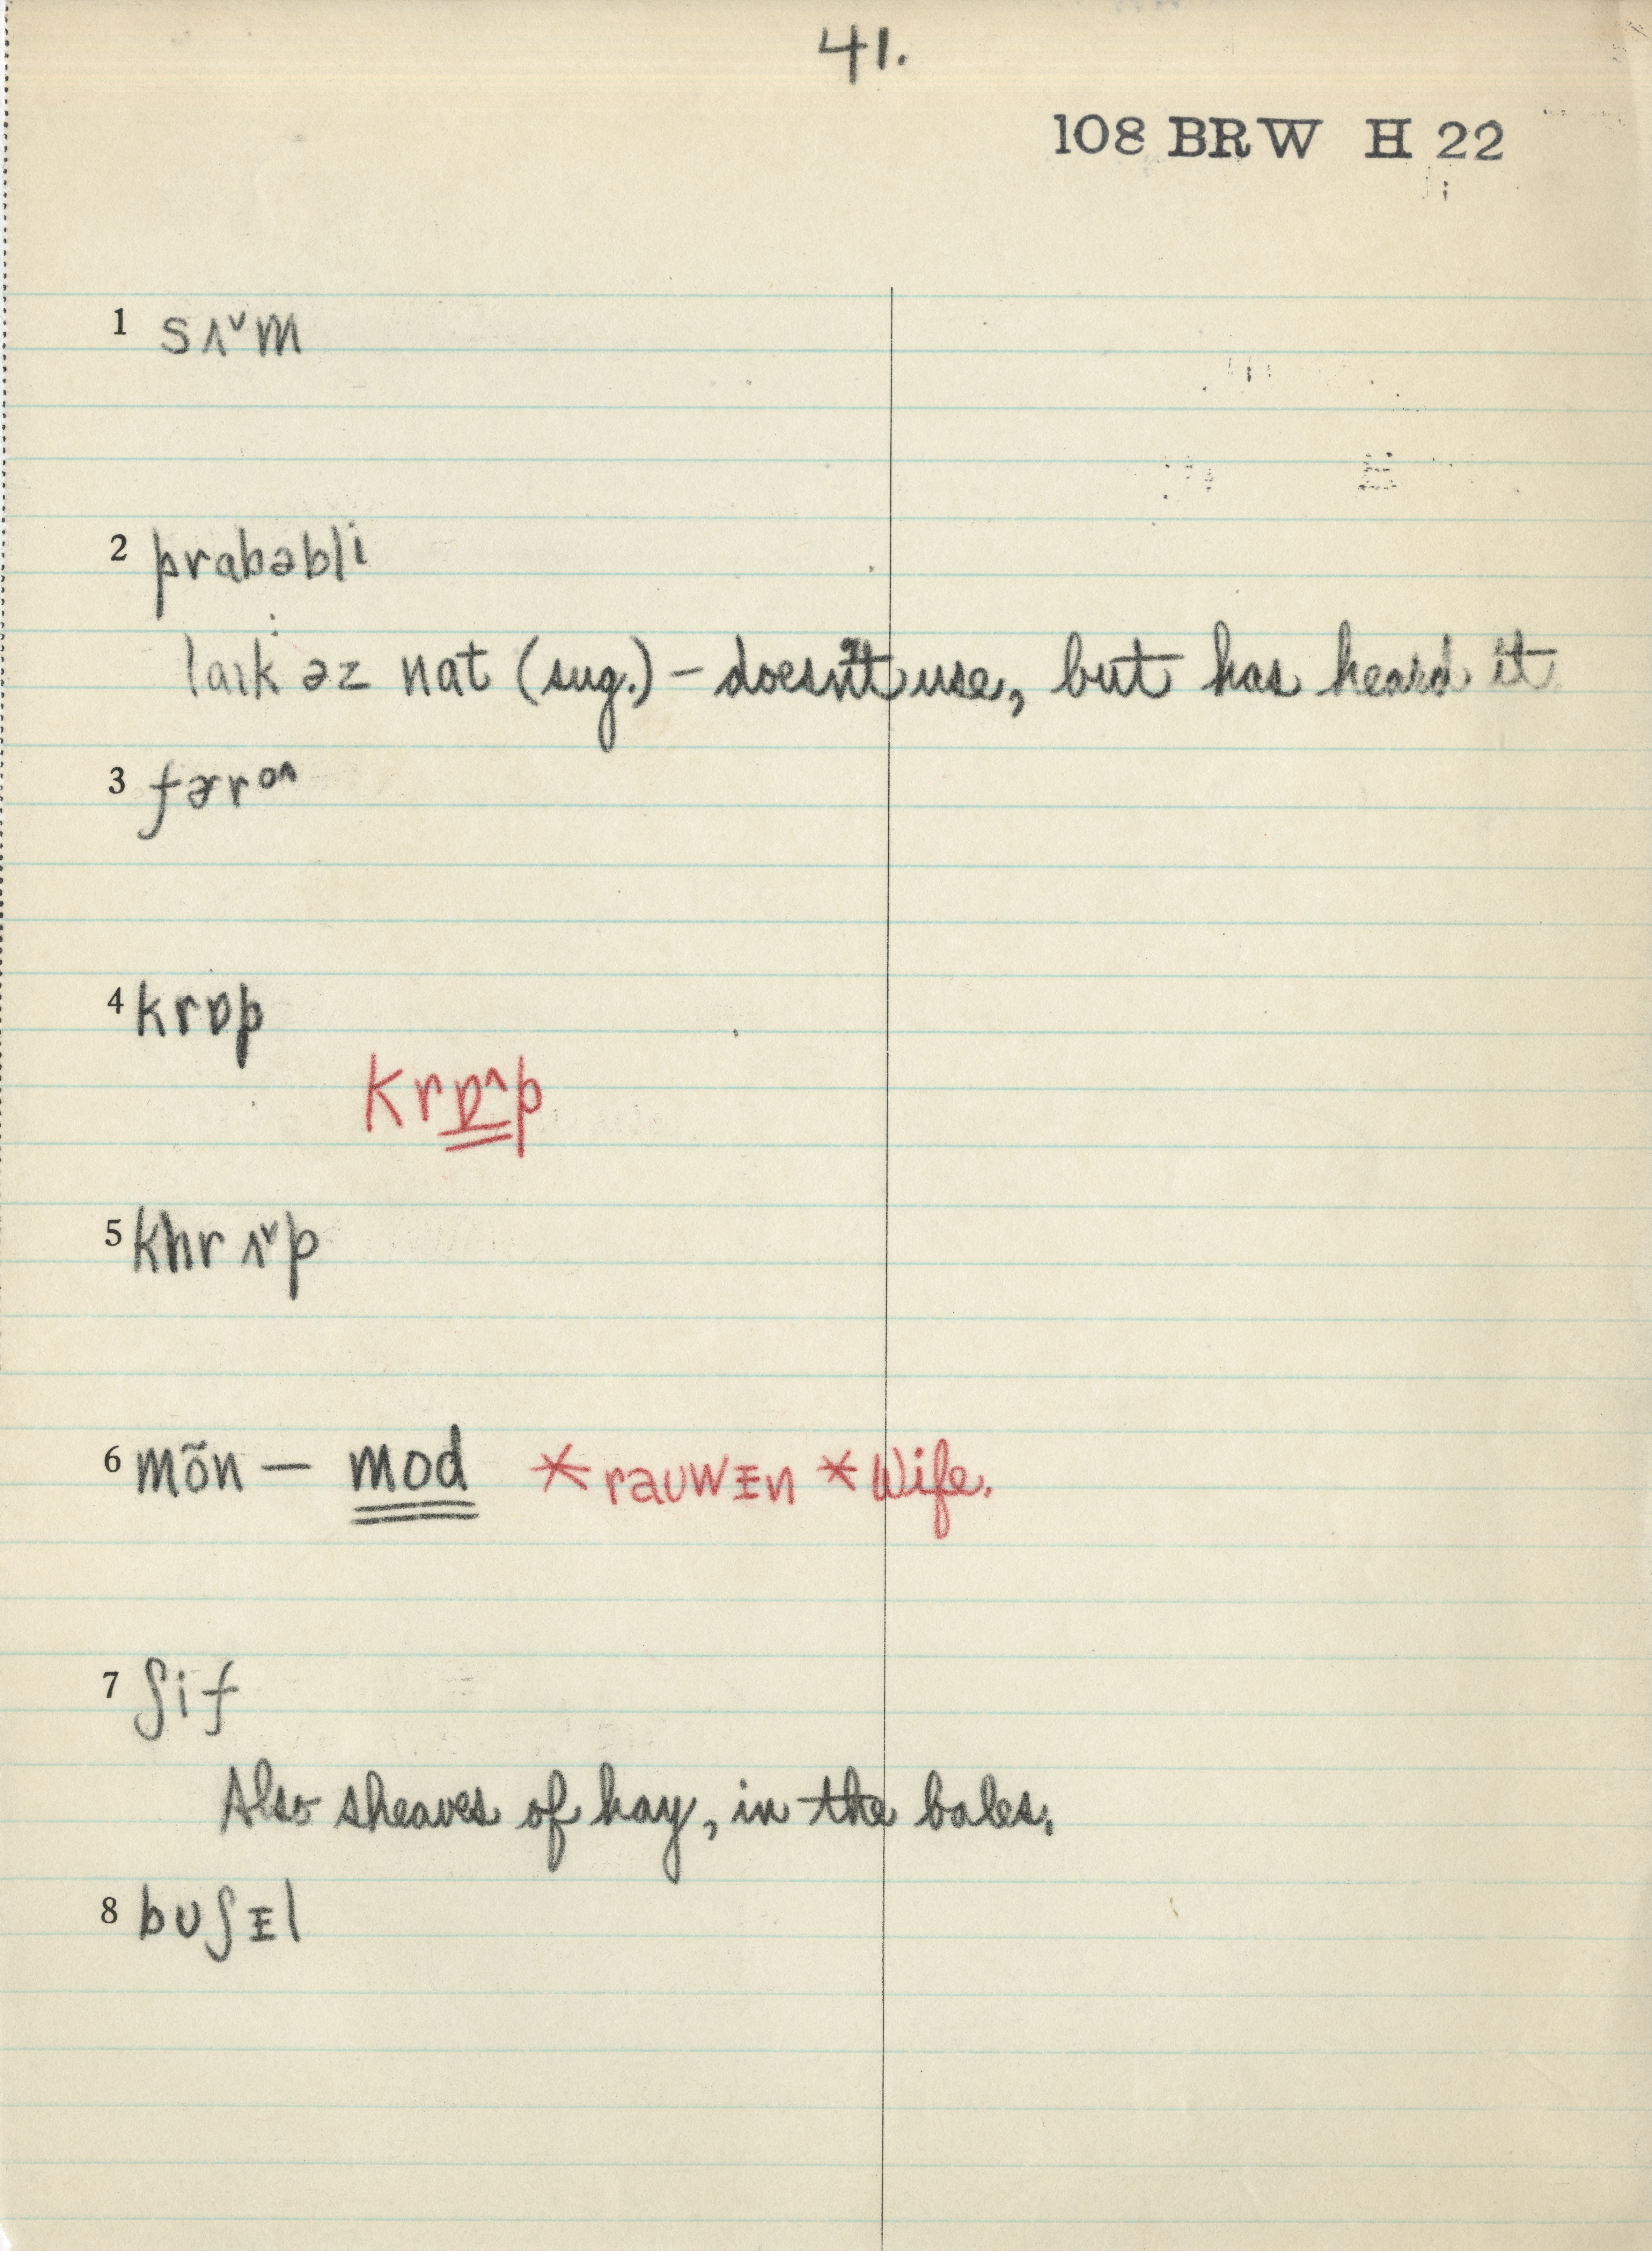 41.
108 BRW H 22
1 sʌ˅m
2 prabəbli
laɪk əz nat (sug.) – doesn't use, but has heard it
3 fɚrᵒ^
4 krɒp
krɒ^p
5 khrʌ˅p
6 mõn – mod *rauwᵻn *Wife.
7 ʃif
Also sheaves of hay, in the bales.
8 bʊʃᵻl